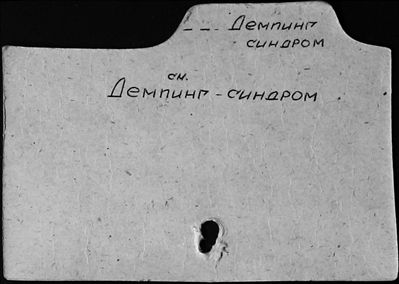 -- Демпинг
синдром
см.
Демпинг-синдром